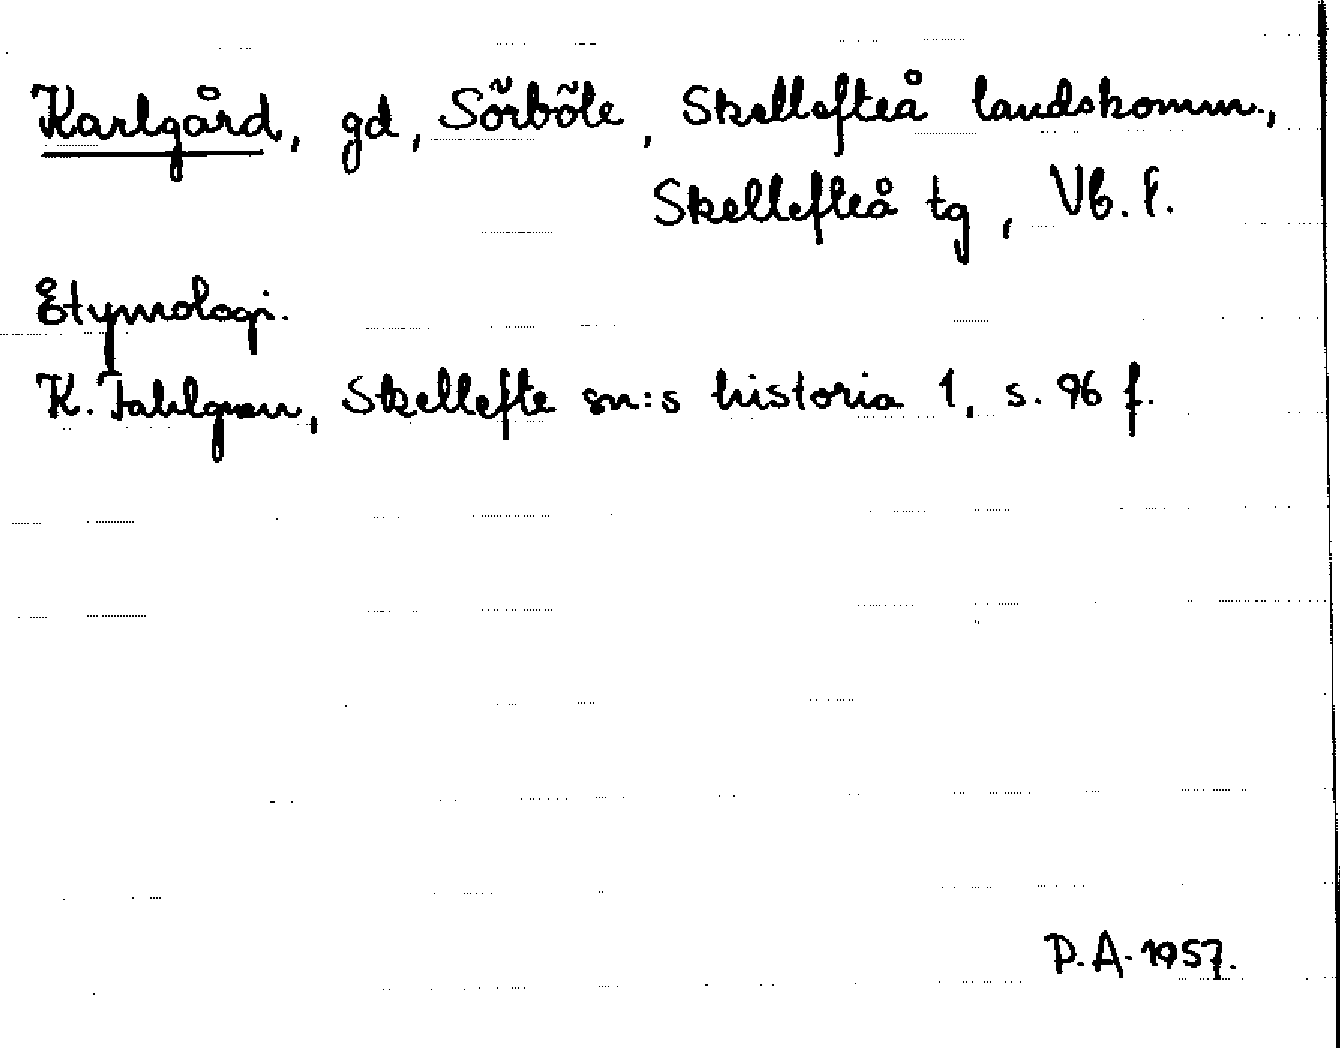 Karlgård, gd, Sörböle, Skellefteå landskomm.,
Skellefteå tg, Vb. l.
Etymologi.
K. Fahlgren, Skellefte sn:s historia 1, s. 96 f.
P.A. 1957.